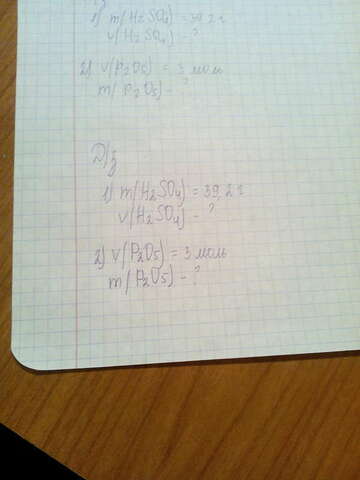 1) m(H2SO4) = 39,2 г
v(H2SO4) - ?
2) v(P2O5) = 3 моль
m(P2O5) - ?
Д/з
1) m(H2SO4) = 39,2 г
v(H2SO4) - ?
2) v(P2O5) = 3 моль
m(P2O5) - ?